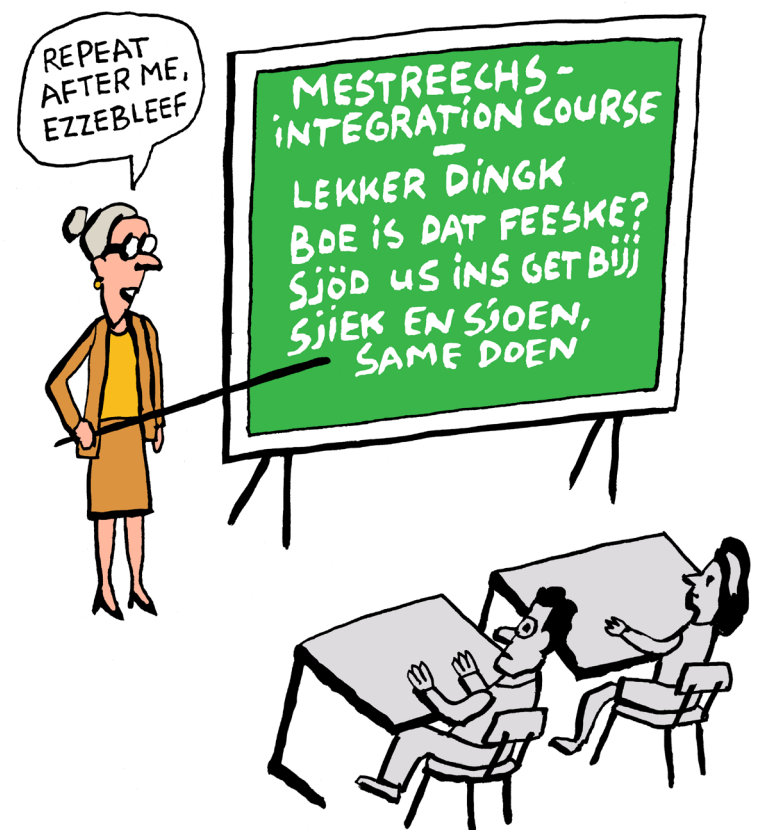 REPEAT
AFTER ME,
EZZEBLEEF
MESTREECHS-
iNTEGRATiON COURSE
–
LEKKER DiNGK
BOE iS DAT FEESKE?
SJÖD US iNS GET BIJJ
SJiEK EN SJOEN,
SAME DOEN